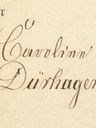 r
Caroline
Dürhagen